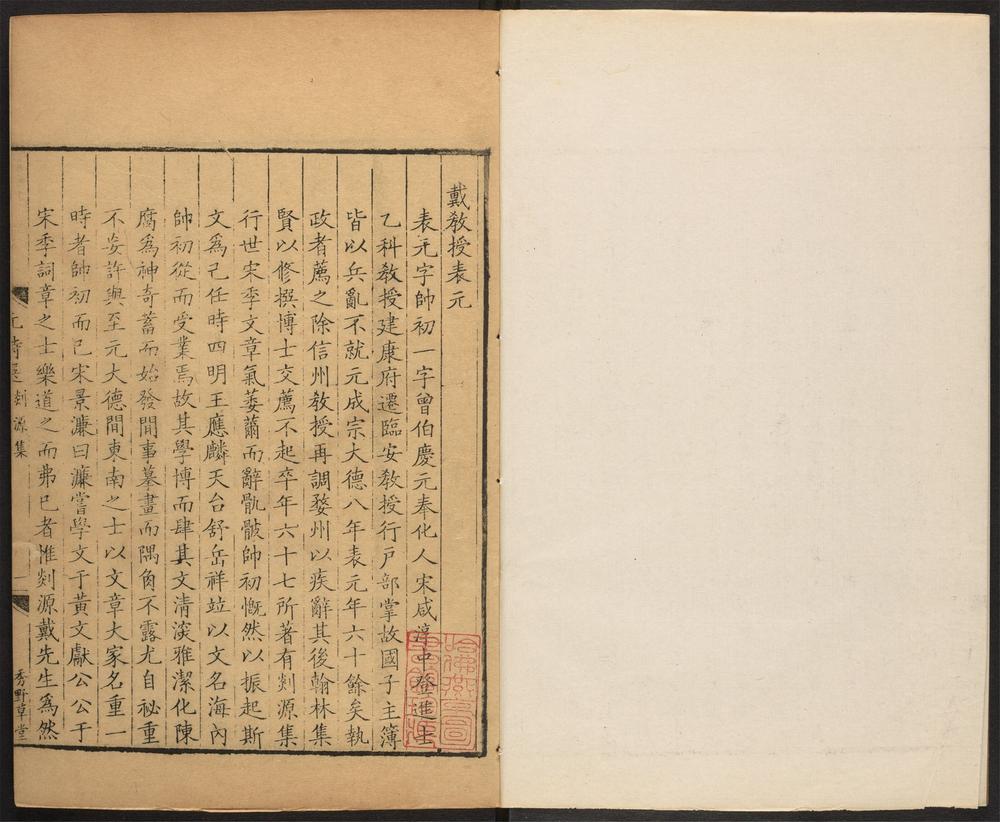 戴教授表元
表元字帥初一字曾伯慶元奉化人宋咸淳中登進士
乙科教授建康府遷臨安教授行戶部掌故國子主簿
皆以兵亂不就元成宗大德八年表元年六十餘矣執
政者薦之除信州教授再調婺州以疾辭其後翰林集
賢以修撰博士交薦不起卒年六十七所著有剡源集
行世宋季文章氣萎薾而辭骫骳帥初慨然以振起斯
文為己任時四明王應麟天台舒岳祥竝以文名海內
帥初從而受業焉故其學博而肆其文清深雅潔化陳
腐為神奇蓄而始發間事摹畫而隅角不露尤自祕重
不妄許與至元大德間東南之士以文章大家名重一
時者帥初而已宋景濂曰濂嘗學文于黃文獻公公于
宋季詞章之士樂道之而弗已者惟剡源戴先生為然
元詩選 剡源集 一 秀野草堂
哈佛燕京圖